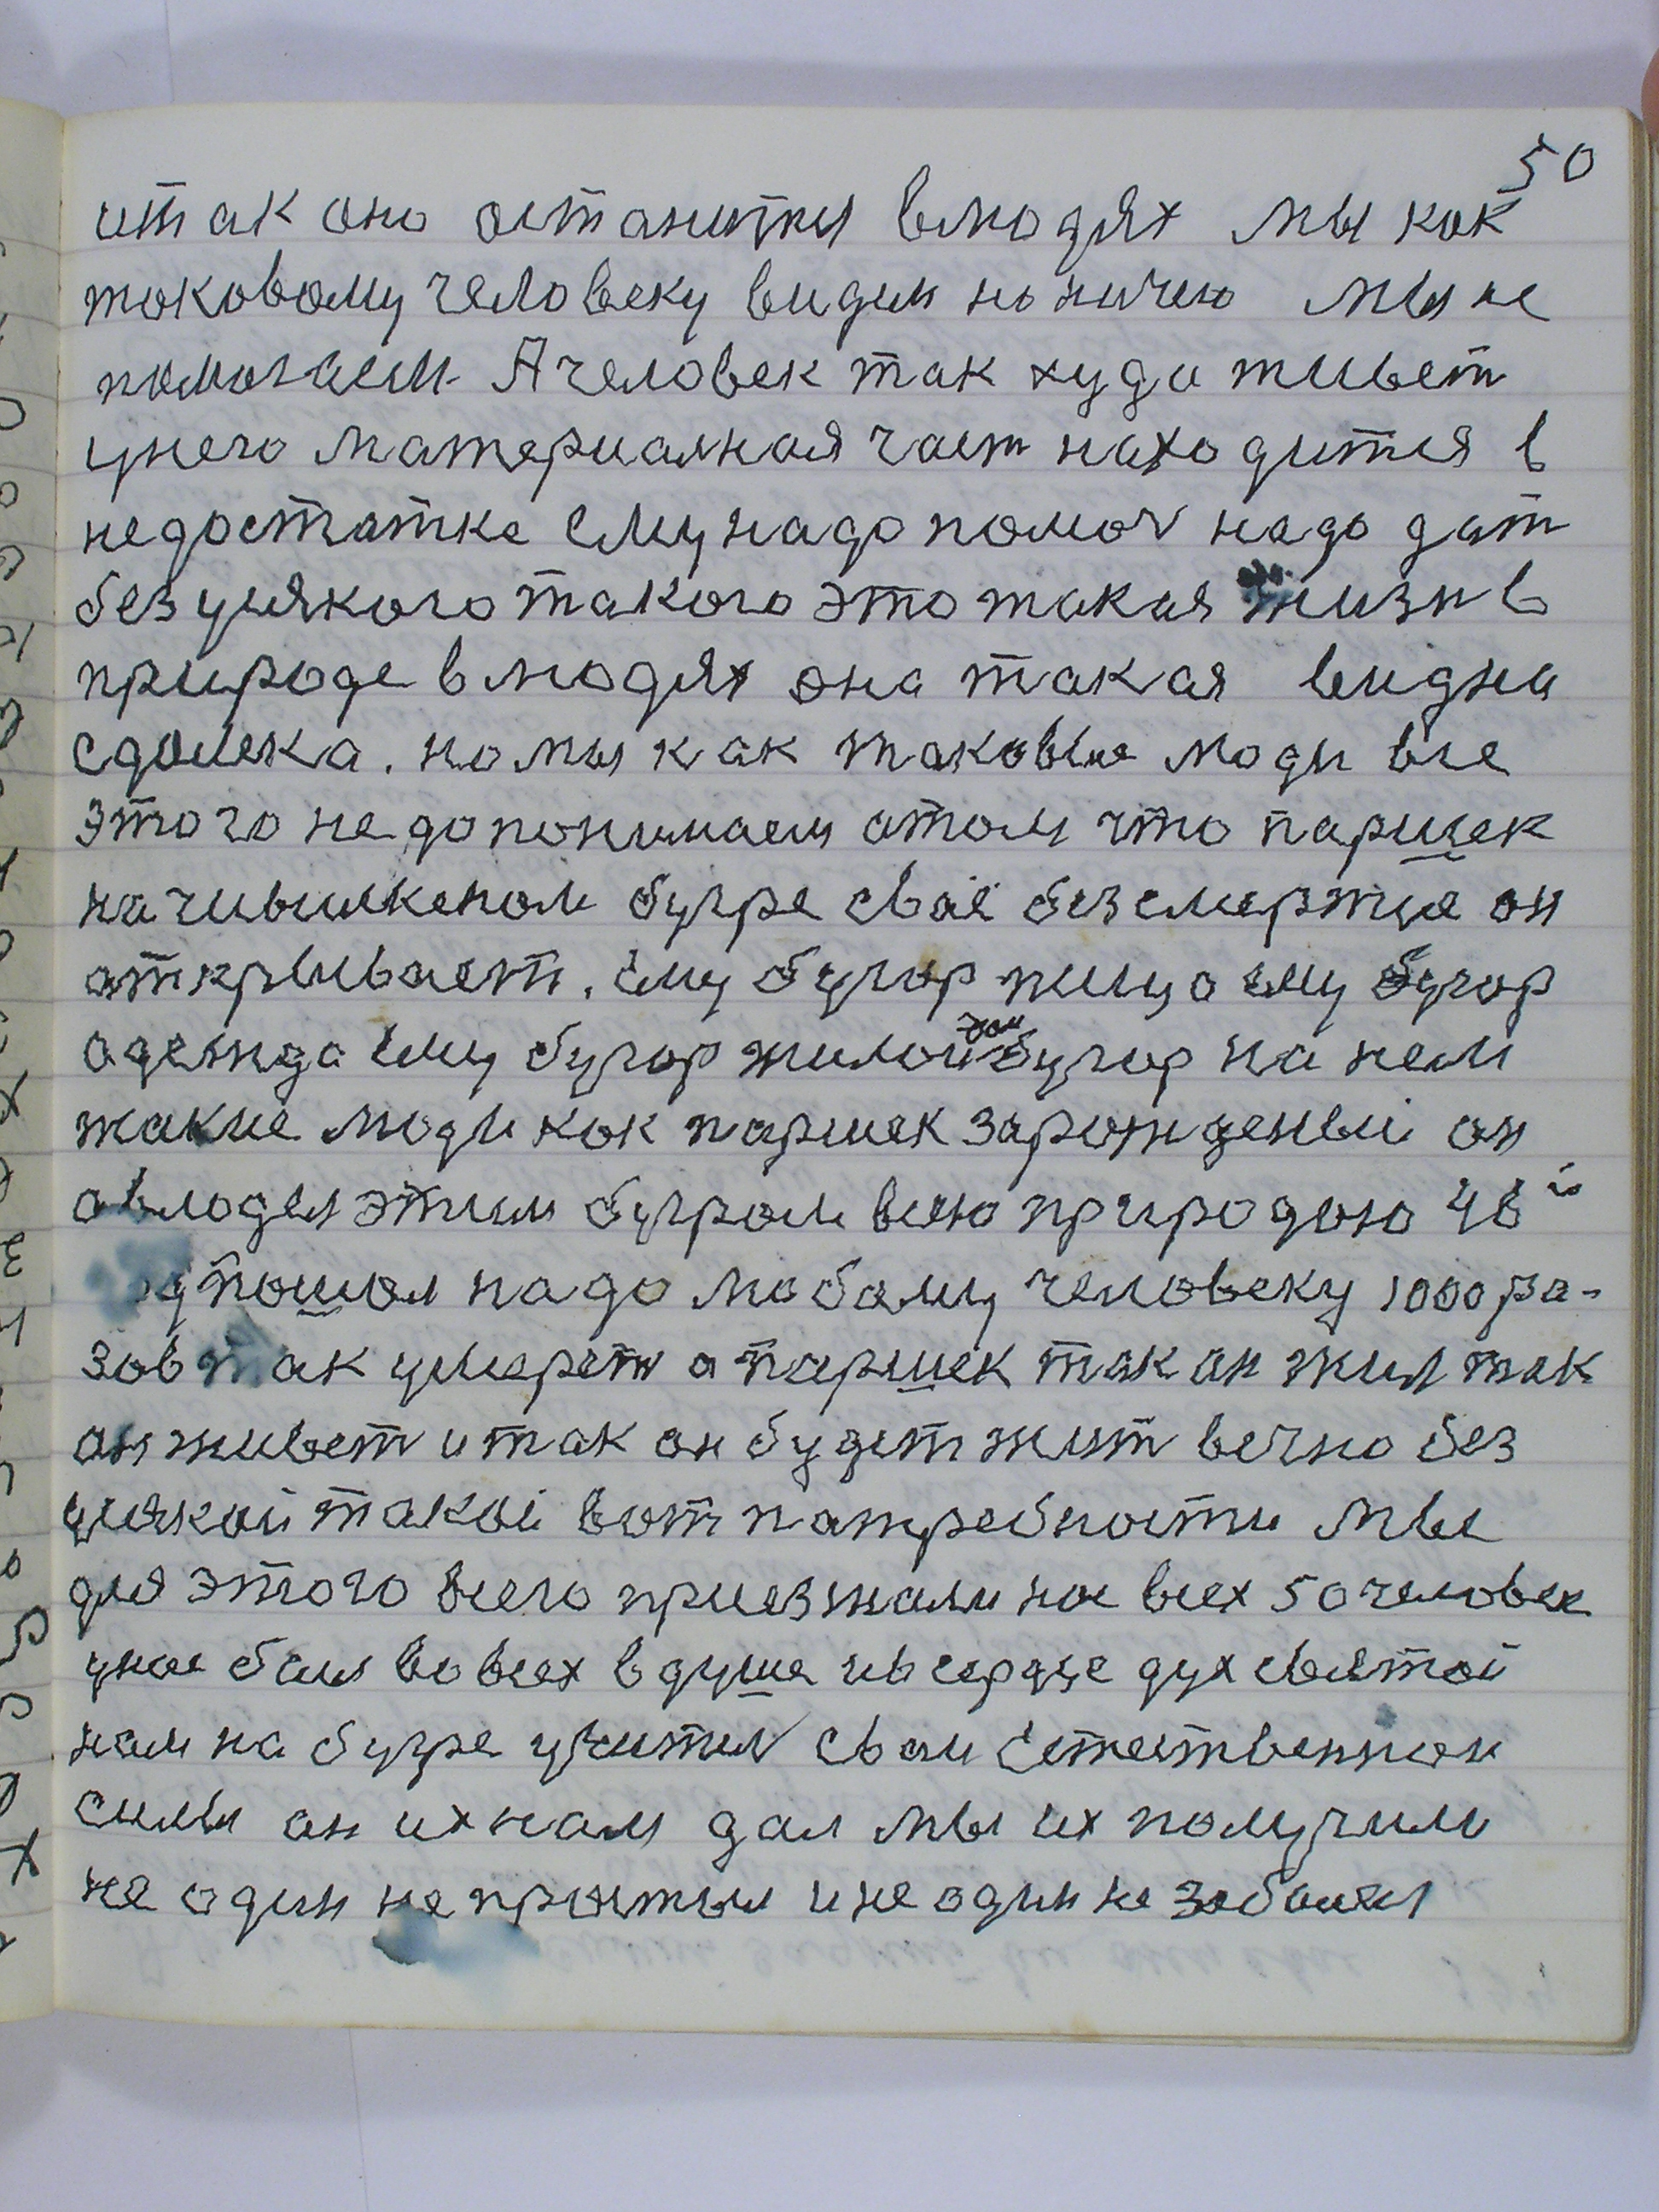 50
итак оно останится влюдях мы как
таковому человеку видем но ничем мы не
помогаем. А человек так худо живет
унего материалная част находится в
недостатке ему надо помоч надо дат
без усякого такого это такая жизн в
природе в людях она такая видна
сдалека. но мы как таковые люди все
этого не допонимаем отом что паршек
на чивилкеном бугре своё безсмертие он
открывает. ему бугор пища ему бугор
одежда ему бугор жилой дом бугор на нем
такие люди как паршек зарожденый он
овлодел этим бугром всею природою 48й
пошол надо любому человеку 1000 ра-
зов так умерет а паршек так он жил так
он живет и так он будет жит вечно без
усякой такой вот патребности мы
для этого всего приезжали нас всех 50 человек
унас был во всех в душе ив сердце дух святой
нам на бугре учител сваи естественнои
силы он их нам дал мы их получили
не один не простыл и не один не заболел